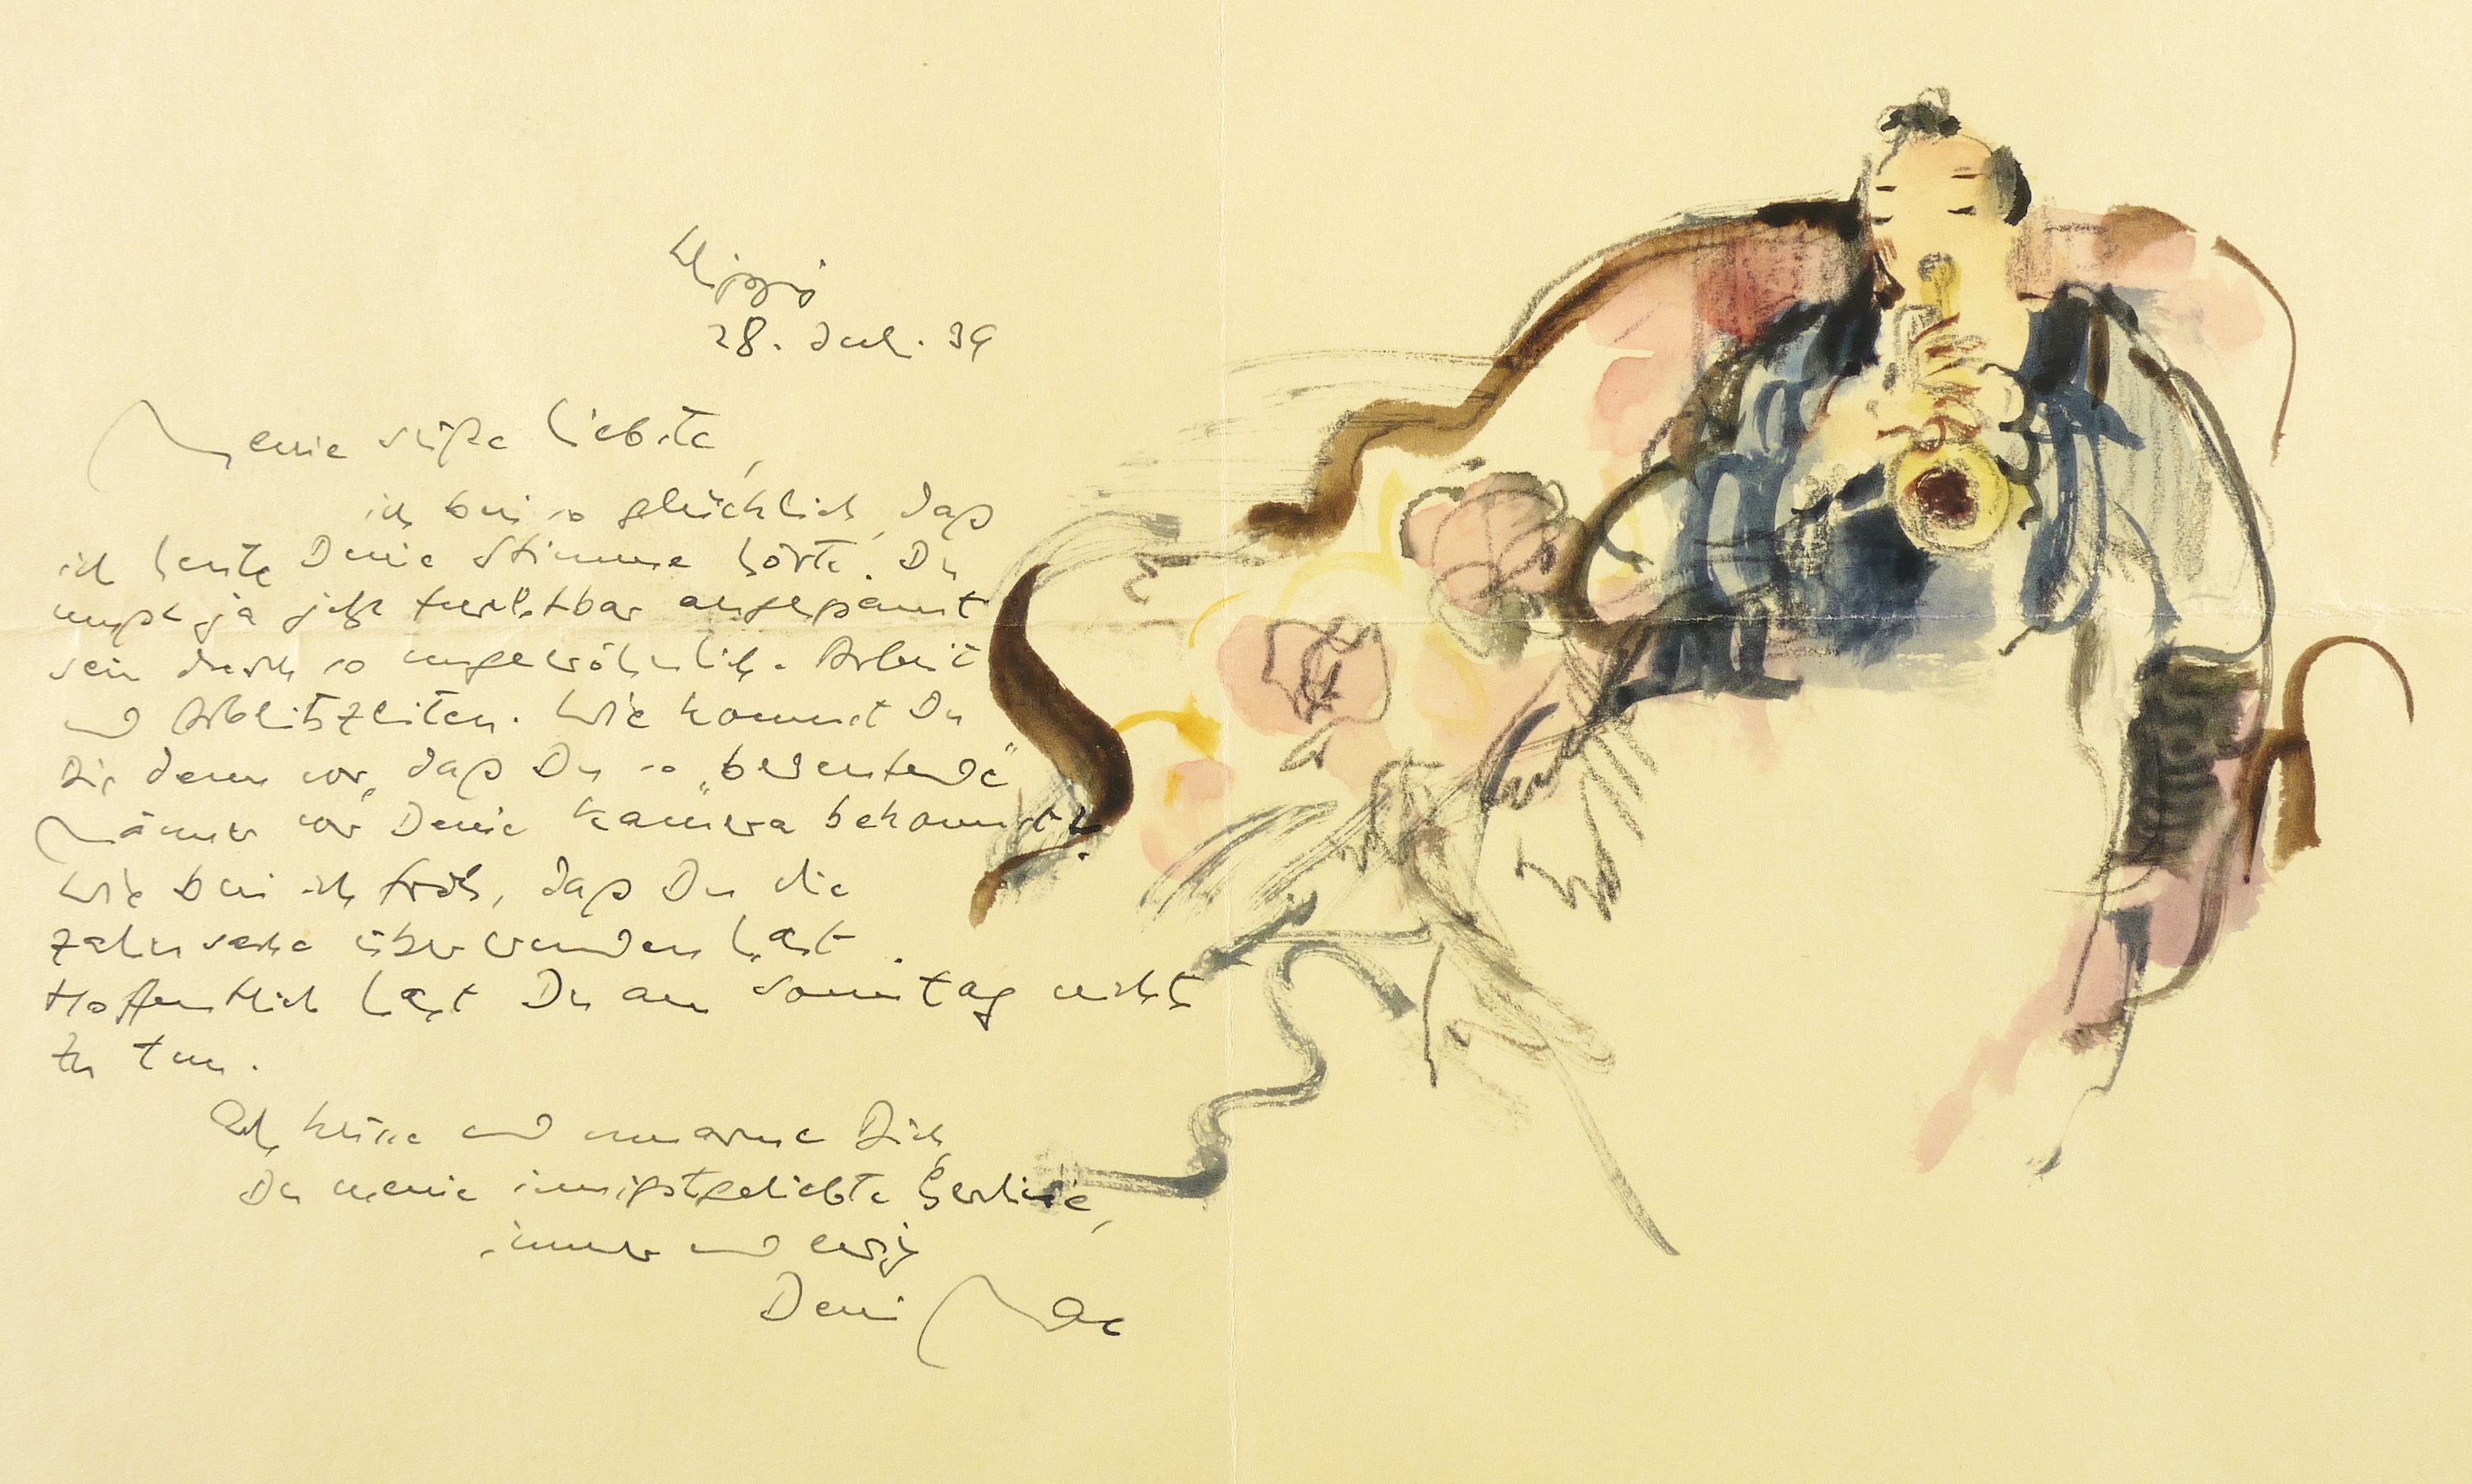 Leipzig
28. Juli. 39
Meine süße Liebste,
ich bin so glücklich, daß
ich heute Deine Stimme hörte. Du
mußt ja jetzt furchtbar angespannt
sein durch so ungewöhnliche Arbeit
und Arbeitszeiten. Wie kommst Du
Dir denn vor, daß Du so „bedeutende"
Männer vor Deine Kamera bekommst?
Wie bin ich froh, daß Du die
Zahnsache überwunden hast.
Hoffentlich hast Du am Sonntag nichts
zu tun.
Ich küsse und umarme Dich,
Du meine innigstgeliebte Gerline,
immer und ewig
Dein Mac